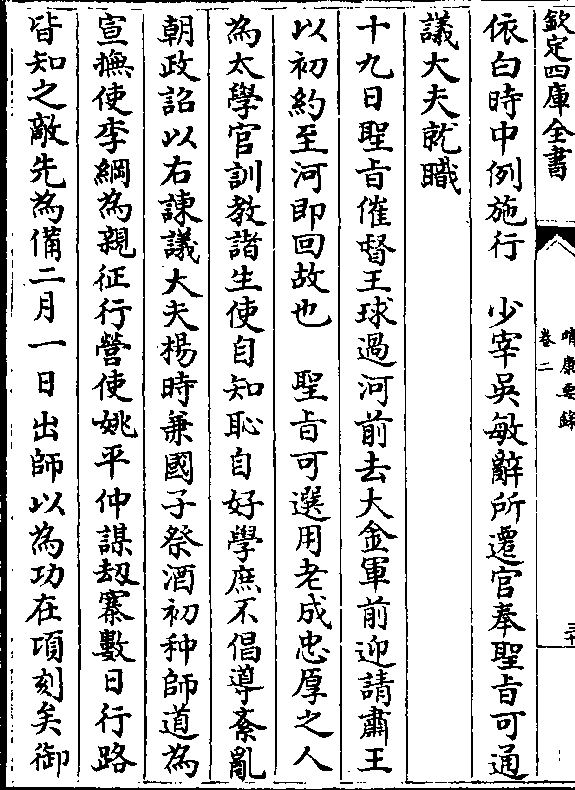 欽定四庫全書
靖康要錄
卷二
三十
依白時中例施行　少宰吳敏辭所遷官奉聖旨可通
議大夫就職
十九日聖旨催督王球過河前去大金軍前迎請肅王
以初約至河即回故也　聖旨可選用老成忠厚之人
為太學官訓教諸生使自知恥自好學庶不倡導紊亂
朝政詔以右諫議大夫楊時兼國子祭酒初种師道為
宣撫使李綱為親征行營使姚平仲謀刼寨數日行路
皆知之敵先為備二月一日出師以為功在項刻矣御